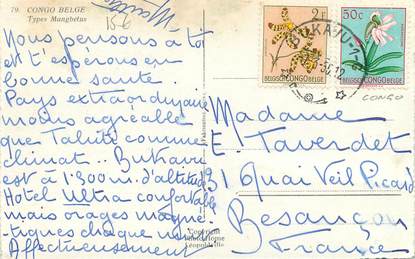 79. CONGO BELGE
Types Mangbetus
15-6
Nous pensons à toi
et t'espérons en
bonne santé.
Pays extraordinaire
moins agréable
que Tahiti comme
climat.. Bukavu
est à 1.500 m. d'altitude
Hôtel Ultra confortable
mais orages magné-
tiques chaque nuit
Affectueusement
2F
BELGISCH CONGO BELGE
50c
BELGISCH CONGO BELGE
BUKAVU-2
CONGO
Madame
E. Taverdet
31 Quai Veil Picard
Besançon
France
Léopoldville